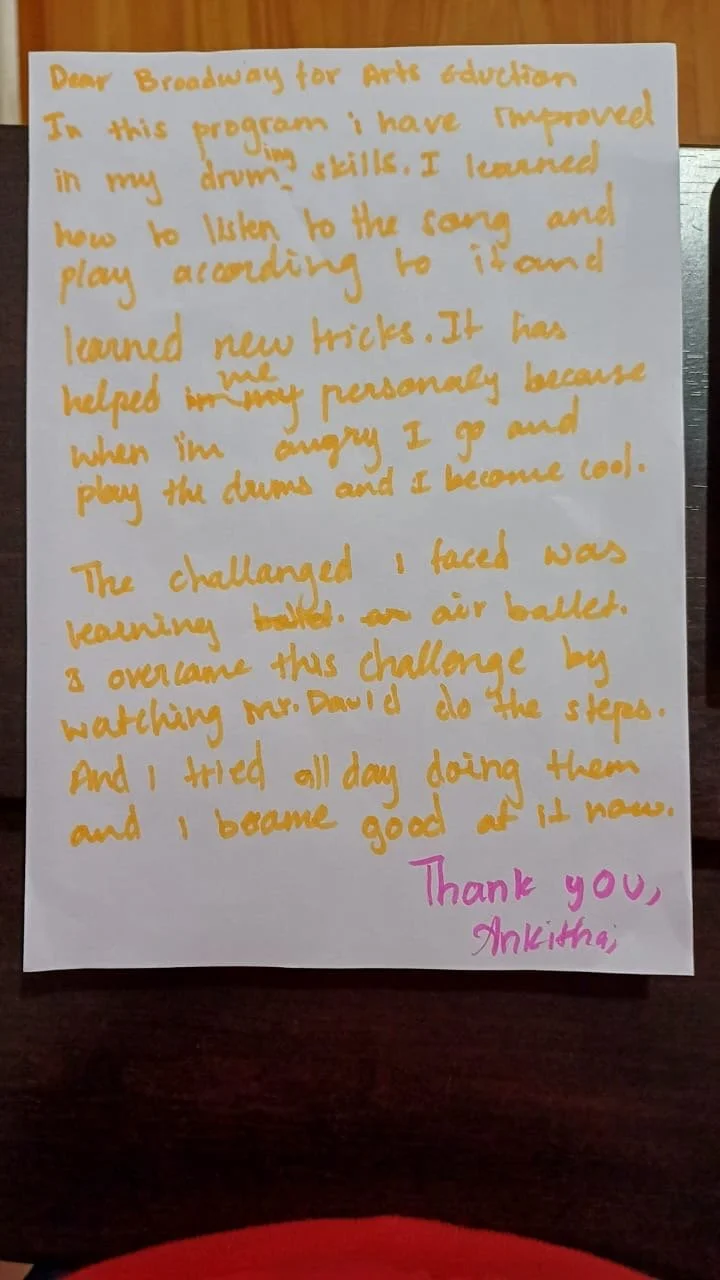 Dear Broadway for Arts Eduction
In this program i have Improved
in my druming skills. I learned
how to listen to the song and
play according to it and
learned new tricks. It has
helped me personaly because
when im angry I go and
play the drums and I become cool.
The challanged I faced was
learning air ballet.
I overcame this challenge by
watching Mr. David do the steps.
And I tried all day doing them
and I became good at it now.
Thank you,
Ankitha,